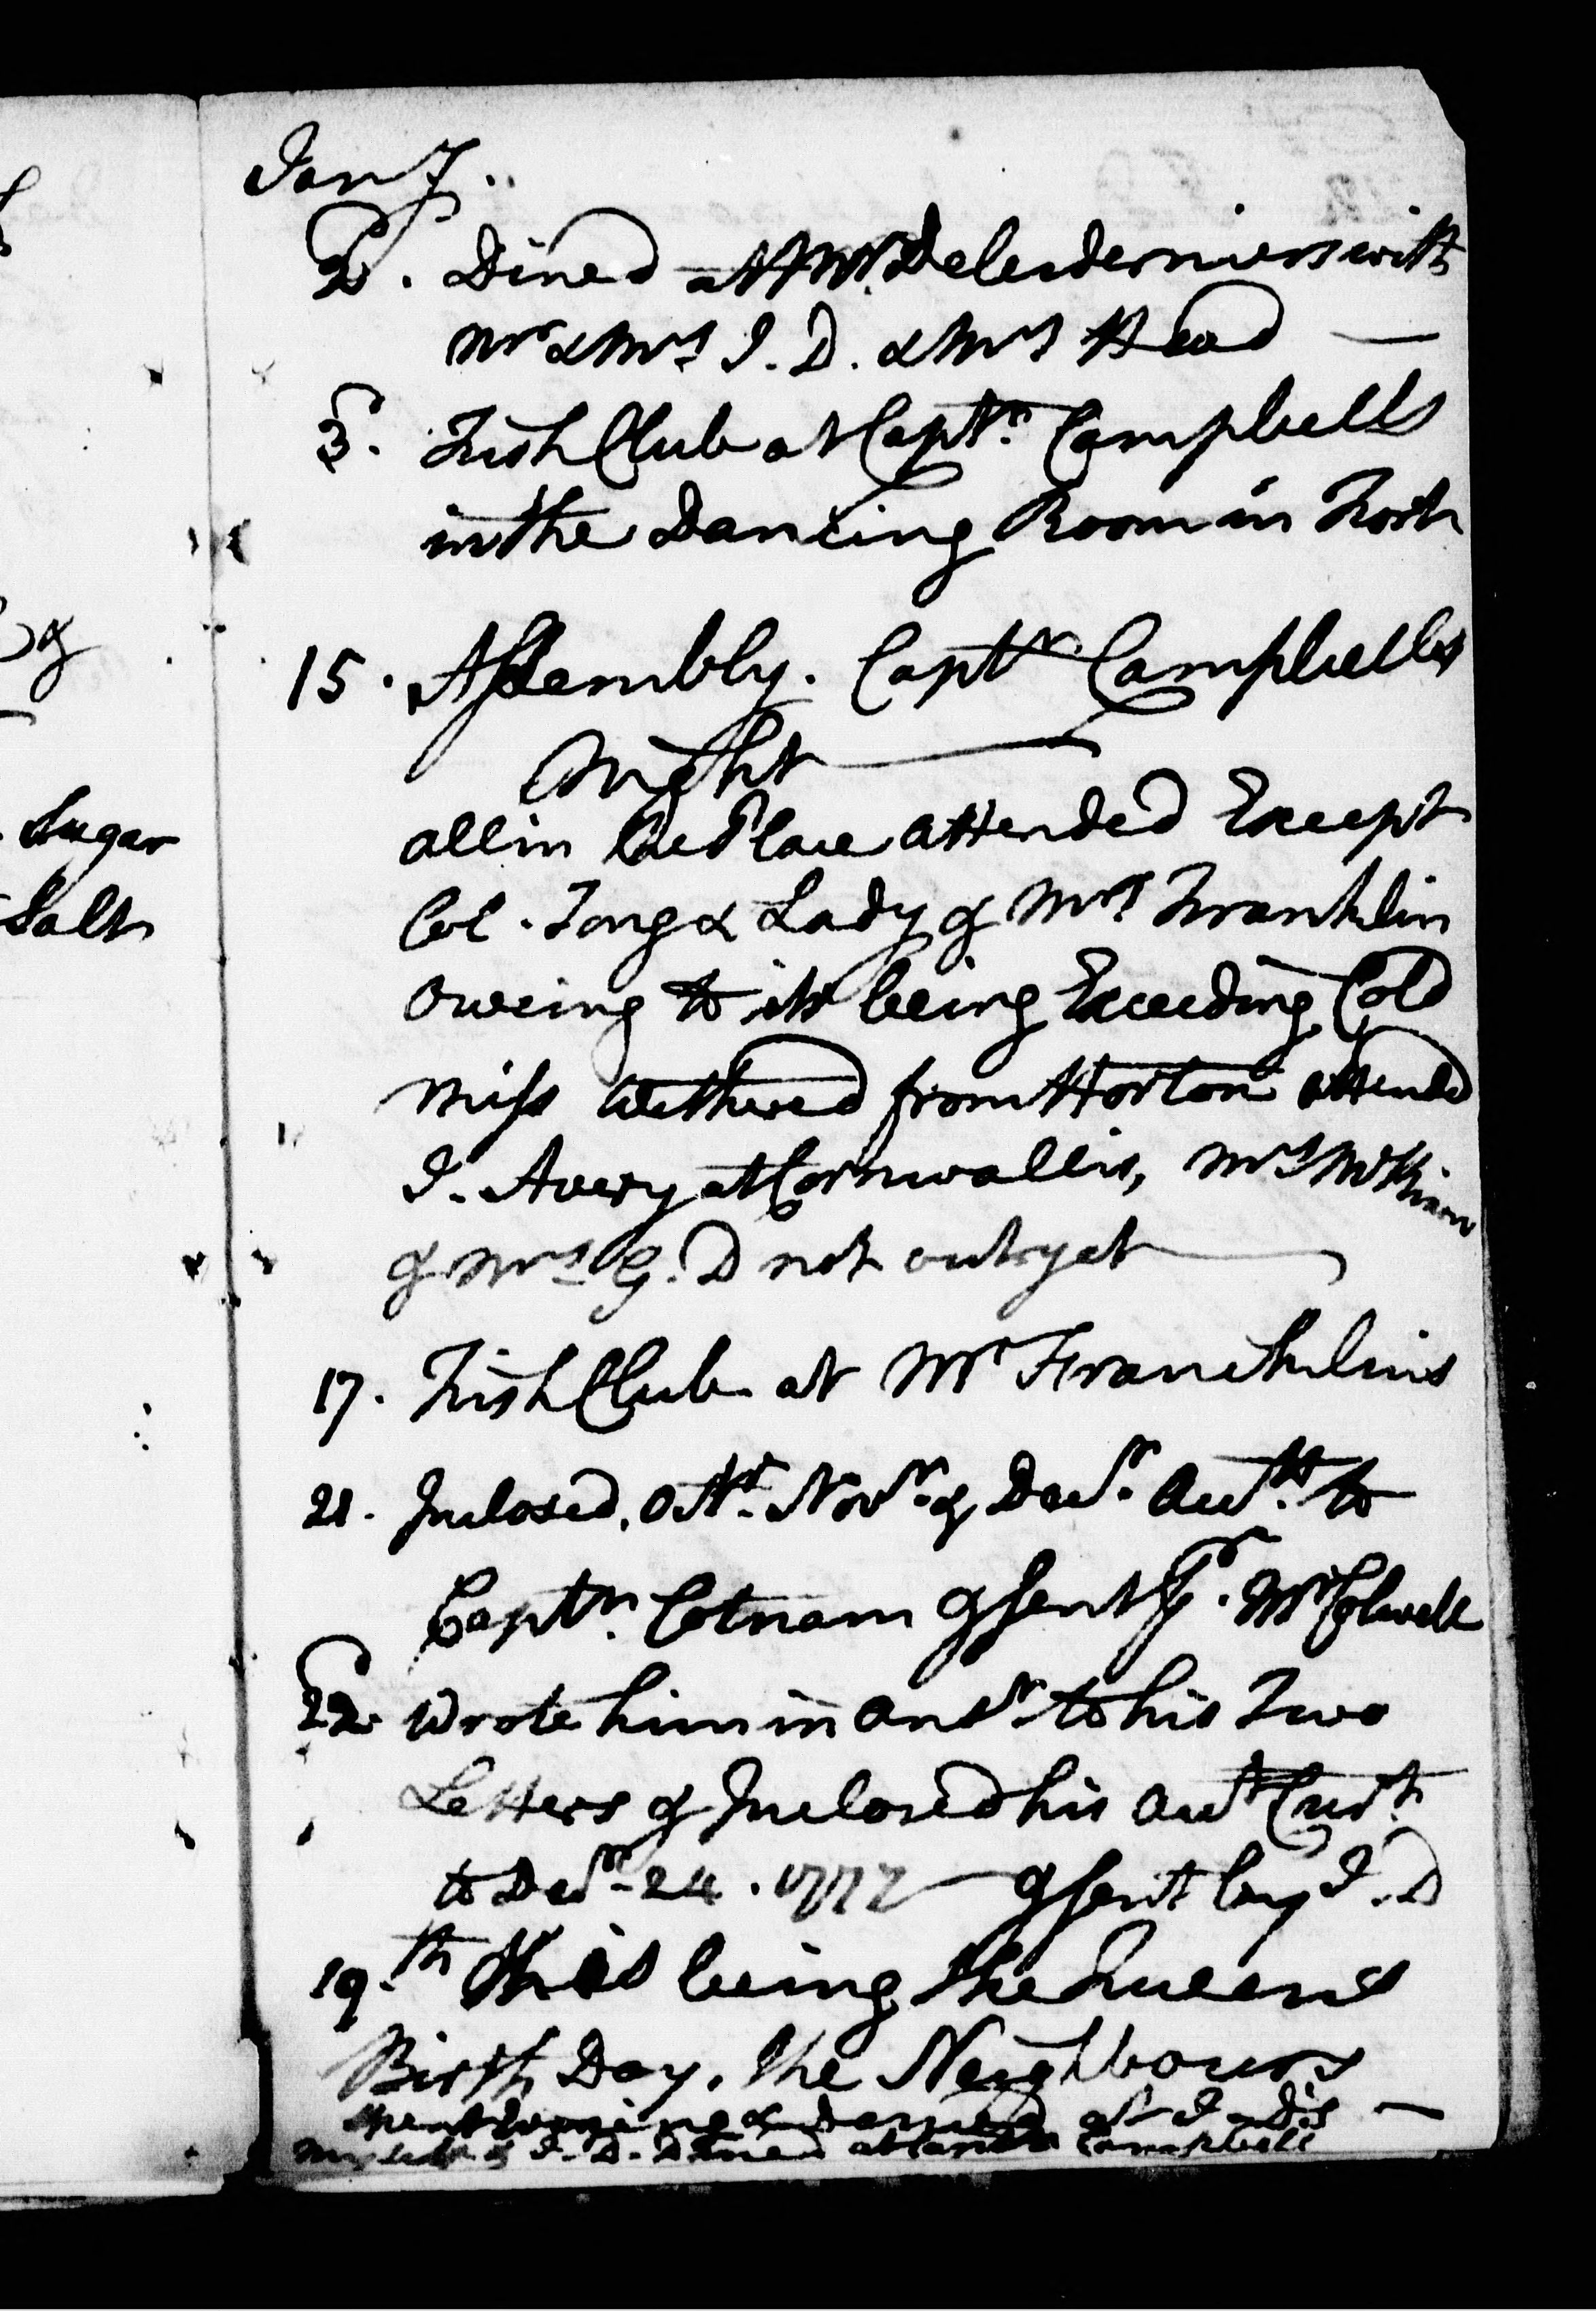 Sugar
Salt
Jany..
2. Dined at Mr. Delesderniers with
Mr & Mrs J. D. & Mrs Head —
3. Fish Club at Captn. Campbells
in the Dancing Room in Fort
15. Assembly. Captn Campbells
Night —
all in the Place attended Except
Col. Tong & Lady & Mrs Franklin
oweing to its being Exceeding Cold
Miss Wethered from Horton attended
J. Avery at Cornwallis, Mrs
& Mrs G. D not out yet —
17. Fish Club at Mr Franchlins
21. Inclosed, Octr. Novr. & Decr. Acctts. to
Captn. Cotnam & sent pr. Mr Colwell
22. Wrote him in ansr. to his Two
Letters & Inclosed his Acct Curt.
to Decr. 24. 1777 — & sent by J. D
19.th This being the Queens
Birth Day, the Neighbours
spent Evening & danced at J. D's —
Myself & J. D. Dined at Captn Campbells